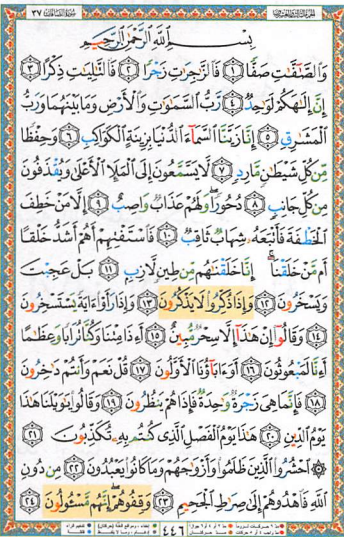 سُورَةُ الصَّافَّاتِ ٣٧
بِسْمِ اللَّهِ الرَّحْمَٰنِ الرَّحِيمِ
وَالصَّٰٓفَّٰتِ صَفًّا ١ فَالزَّٰجِرَٰتِ زَجْرًا ٢ فَالتَّٰلِيَٰتِ ذِكْرًا ٣
إِنَّ إِلَٰهَكُمْ لَوَٰحِدٌ ٤ رَّبُّ السَّمَٰوَٰتِ وَالْأَرْضِ وَمَا بَيْنَهُمَا وَرَبُّ
الْمَشَٰرِقِ ٥ إِنَّا زَيَّنَّا السَّمَآءَ الدُّنْيَا بِزِينَةٍ الْكَوَاكِبِ ٦ وَحِفْظًا
مِّن كُلِّ شَيْطَٰنٍ مَّارِدٍ ٧ لَّا يَسَّمَّعُونَ إِلَى الْمَلَإِ الْأَعْلَىٰ وَيُقْذَفُونَ
مِن كُلِّ جَانِبٍ ٨ دُحُورًا ۖ وَلَهُمْ عَذَابٌ وَاصِبٌ ٩ إِلَّا مَنْ خَطِفَ
الْخَطْفَةَ فَأَتْبَعَهُۥ شِهَابٌ ثَاقِبٌ ١٠ فَاسْتَفْتِهِمْ أَهُمْ أَشَدُّ خَلْقًا
أَم مَّنْ خَلَقْنَآ ۚ إِنَّا خَلَقْنَٰهُم مِّن طِينٍ لَّازِبٍ ١١ بَلْ عَجِبْتَ
وَيَسْخَرُونَ ١٢ وَإِذَا ذُكِّرُوا لَا يَذْكُرُونَ ١٣ وَإِذَا رَأَوْا ءَايَةً يَسْتَسْخِرُونَ
١٤ وَقَالُوٓا إِنْ هَٰذَآ إِلَّا سِحْرٌ مُّبِينٌ ١٥ أَءِذَا مِتْنَا وَكُنَّا تُرَابًا وَعِظَٰمًا
أَءِنَّا لَمَبْعُوثُونَ ١٦ أَوَءَابَآؤُنَا الْأَوَّلُونَ ١٧ قُلْ نَعَمْ وَأَنتُمْ دَٰخِرُونَ
١٨ فَإِنَّمَا هِيَ زَجْرَةٌ وَٰحِدَةٌ فَإِذَا هُمْ يَنظُرُونَ ١٩ وَقَالُوا يَٰوَيْلَنَا هَٰذَا
يَوْمُ الدِّينِ ٢٠ هَٰذَا يَوْمُ الْفَصْلِ الَّذِي كُنتُم بِهِۦ تُكَذِّبُونَ ٢١
۞ احْشُرُوا الَّذِينَ ظَلَمُوا وَأَزْوَٰجَهُمْ وَمَا كَانُوا يَعْبُدُونَ ٢٢ مِن دُونِ
اللَّهِ فَاهْدُوهُمْ إِلَىٰ صِرَٰطِ الْجَحِيمِ ٢٣ وَقِفُوهُمْ ۖ إِنَّهُم مَّسْـُٔولُونَ ٢٤
٤٤٦